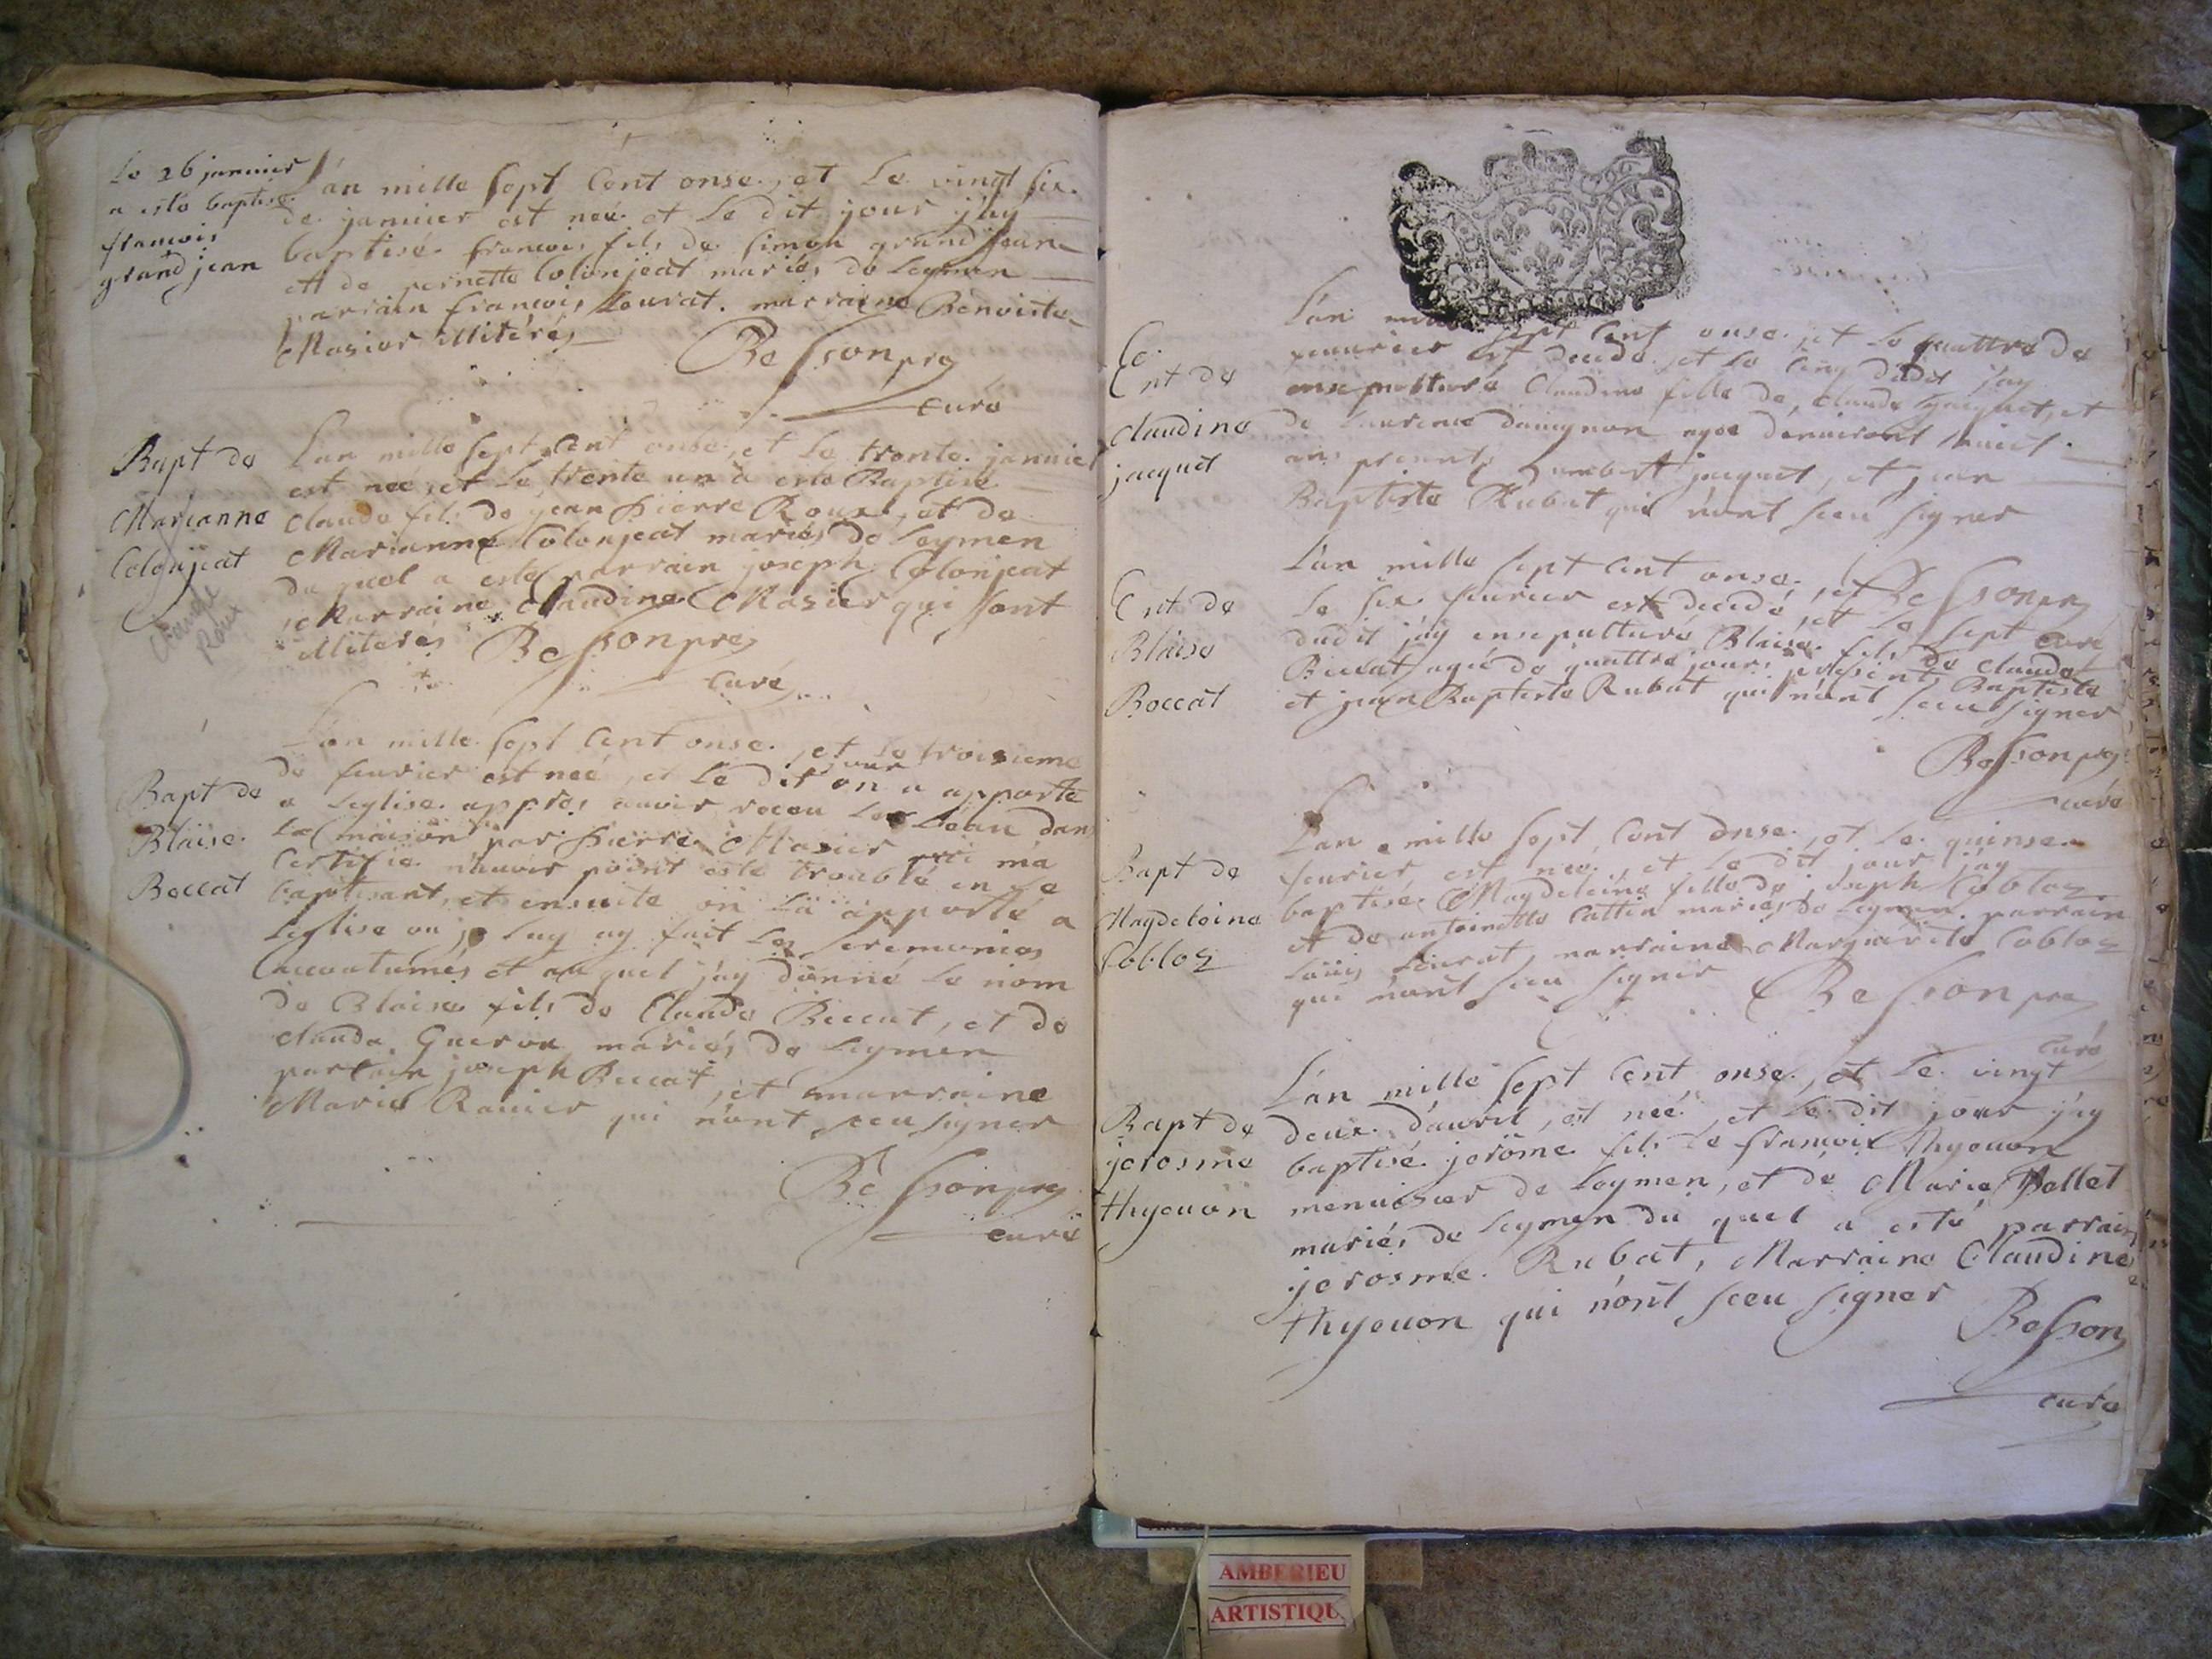 Le 26 januier
a esto baptisé
francois
grand jean
L'an mille sept Cent onse, et Le vingt six
de januier est neé et Le dit jour j'ay
baptisé francois fils de Simon grand Jean
et de pernette Colonjeat mariés de Leymen
parrain francois Lourat. marraine Benoiste
Masier illiterés
Besson pre
curé
Bapt de
Marianne
Colonjeat
Claude
Roux
L'an mille sept Cent onse, et Le trente januier
est neé, et Le trente un a esté Baptisé
Claude fils de jean pierre Roux, et de
Marianne Colonjeat mariés de Leymen
du quel a esté parrain joseph Colonjeat
Marraine Claudine Masier qui sont
illiterés
Besson pre
Curé
Bapt de
Blaise
Beccat
L'an mille sept Cent onse, et Le troisieme
de feurier est neé, et Le dit jour on a apporté
a Leglise appres auoir receu Leau dans
La maison par pierre Masier qui m'a
Certifie n'auoir point esté troublé en Le
baptisant, et ensuite on La apporté a
Leglise ou je Luy ay fait Les ceremonies
accoutumés et auquel j'ay donné Le nom
de Blaise fils de Claude Beccat, et de
Clauda Gueron mariés de Leymen
parrain joseph Beccat, et marraine
Marie Rauier qui n'ont sceu signer
Besson pre
curé
Ent de
Claudine
jacquet
L'an mille sept Cent onse, et Le quattre de
feurier est decedé, et Le Cinq dudit j'ay
ensepulturé Claudine fille de Claude jacquet, et
de Laurence dauignon agée d'enuiront huict
ans presents humbert jacquet, et jean
Baptiste Rubat qui n'ont sceu signer
Besson pre
curé
Ent de
Blaise
Beccat
L'an mille sept Cent onse, et
Le six feurier est decedé, et Le sept
dudit j'ay ensepulturé Blaise fils de Claude
Beccat agé de quattre jours presents Baptiste
et jean Baptiste Rubat qui n'ont sceu signer
Besson pre
curé
Bapt de
Magdeleine
Cobloz
L'an mille sept Cent onse, et Le quinse
feurier est neé, et Le dit jour j'ay
baptisé Magdeleine fille de joseph Cobloz
et de antoinette Cattin mariés de Leymen parrain
Loüis Lourat, marraine Marguerite Cobloz
qui n'ont sceu signer
Besson pre
Curé
Bapt de
jerosme
thyouon
L'an mille sept Cent onse, et Le vingt
deux d'auril, est neé, et Le dit jour j'ay
baptisé jerôme fils de francois thyouon
menuisier de Leymen, et de Marie Pellet
mariés de Leymen du quel a esté parrain
jerosme Rubat, Marraine Claudine
thyouon qui n'ont sceu signer
Besson
curé
AMBERIEU
ARTISTIQU